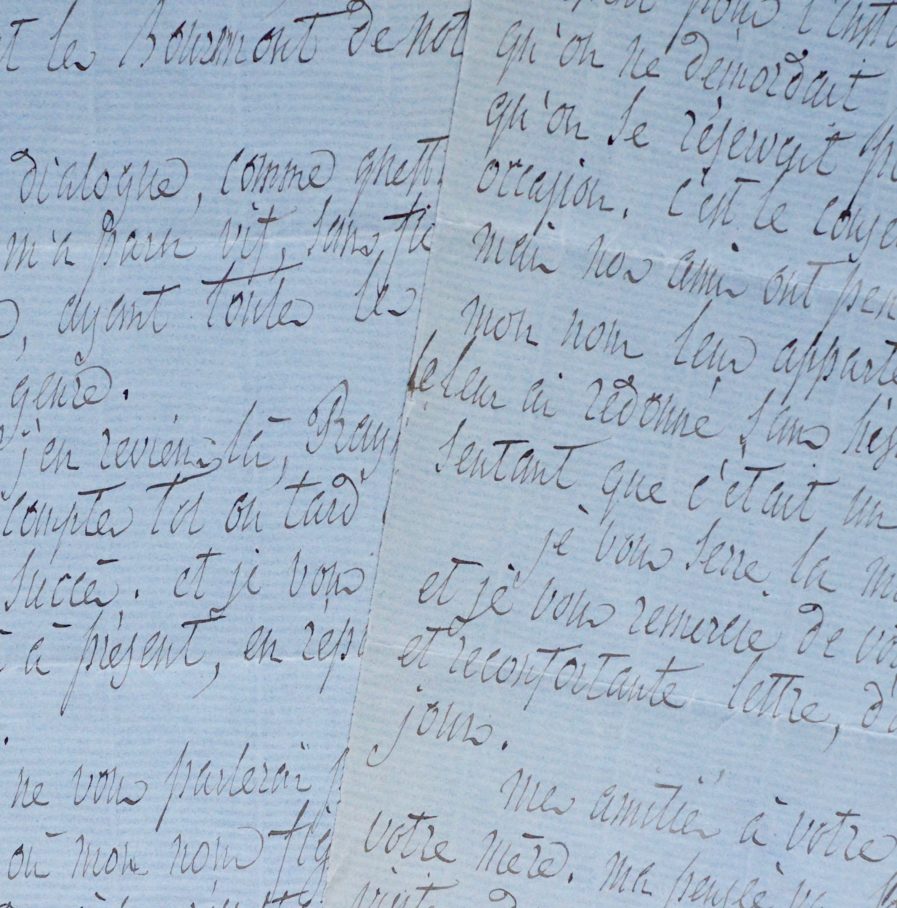 les Bourmont de not
dialogue, comme quest
m'a paru vif, sans
, ayant toutes les
genre.
j'en reviens là,
compter tôt ou tard
succès. et je vous
à présent, en rép
ne vous parlerai p
où mon nom fig
pour l'inst
qu'on ne démordait
qu'on se réservait p
occasion. c'est le
mais nos amis ont pen
mon nom leur apparte
je leur ai redonné sans hés
sentant que c'était un
je vous serre la m
et je vous remercie de vo
et réconfortante lettre, d'
jours.
mes amitiés à votre
votre mère. ma pensée va